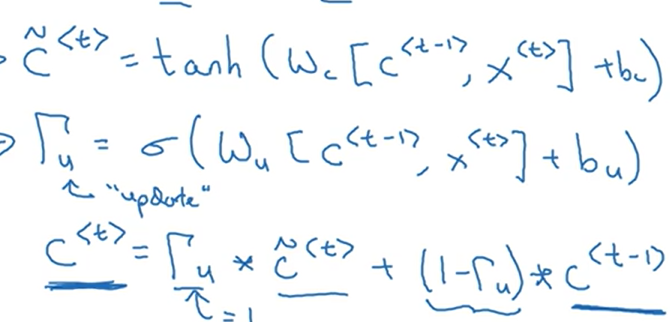 c̃^<t> = tanh(W_c[c^<t-1>, x^<t>] + b_c)
Γ_u = σ(W_u[c^<t-1>, x^<t>] + b_u)
"update"
c^<t> = Γ_u * c̃^<t> + (1-Γ_u) * c^<t-1>
= 1